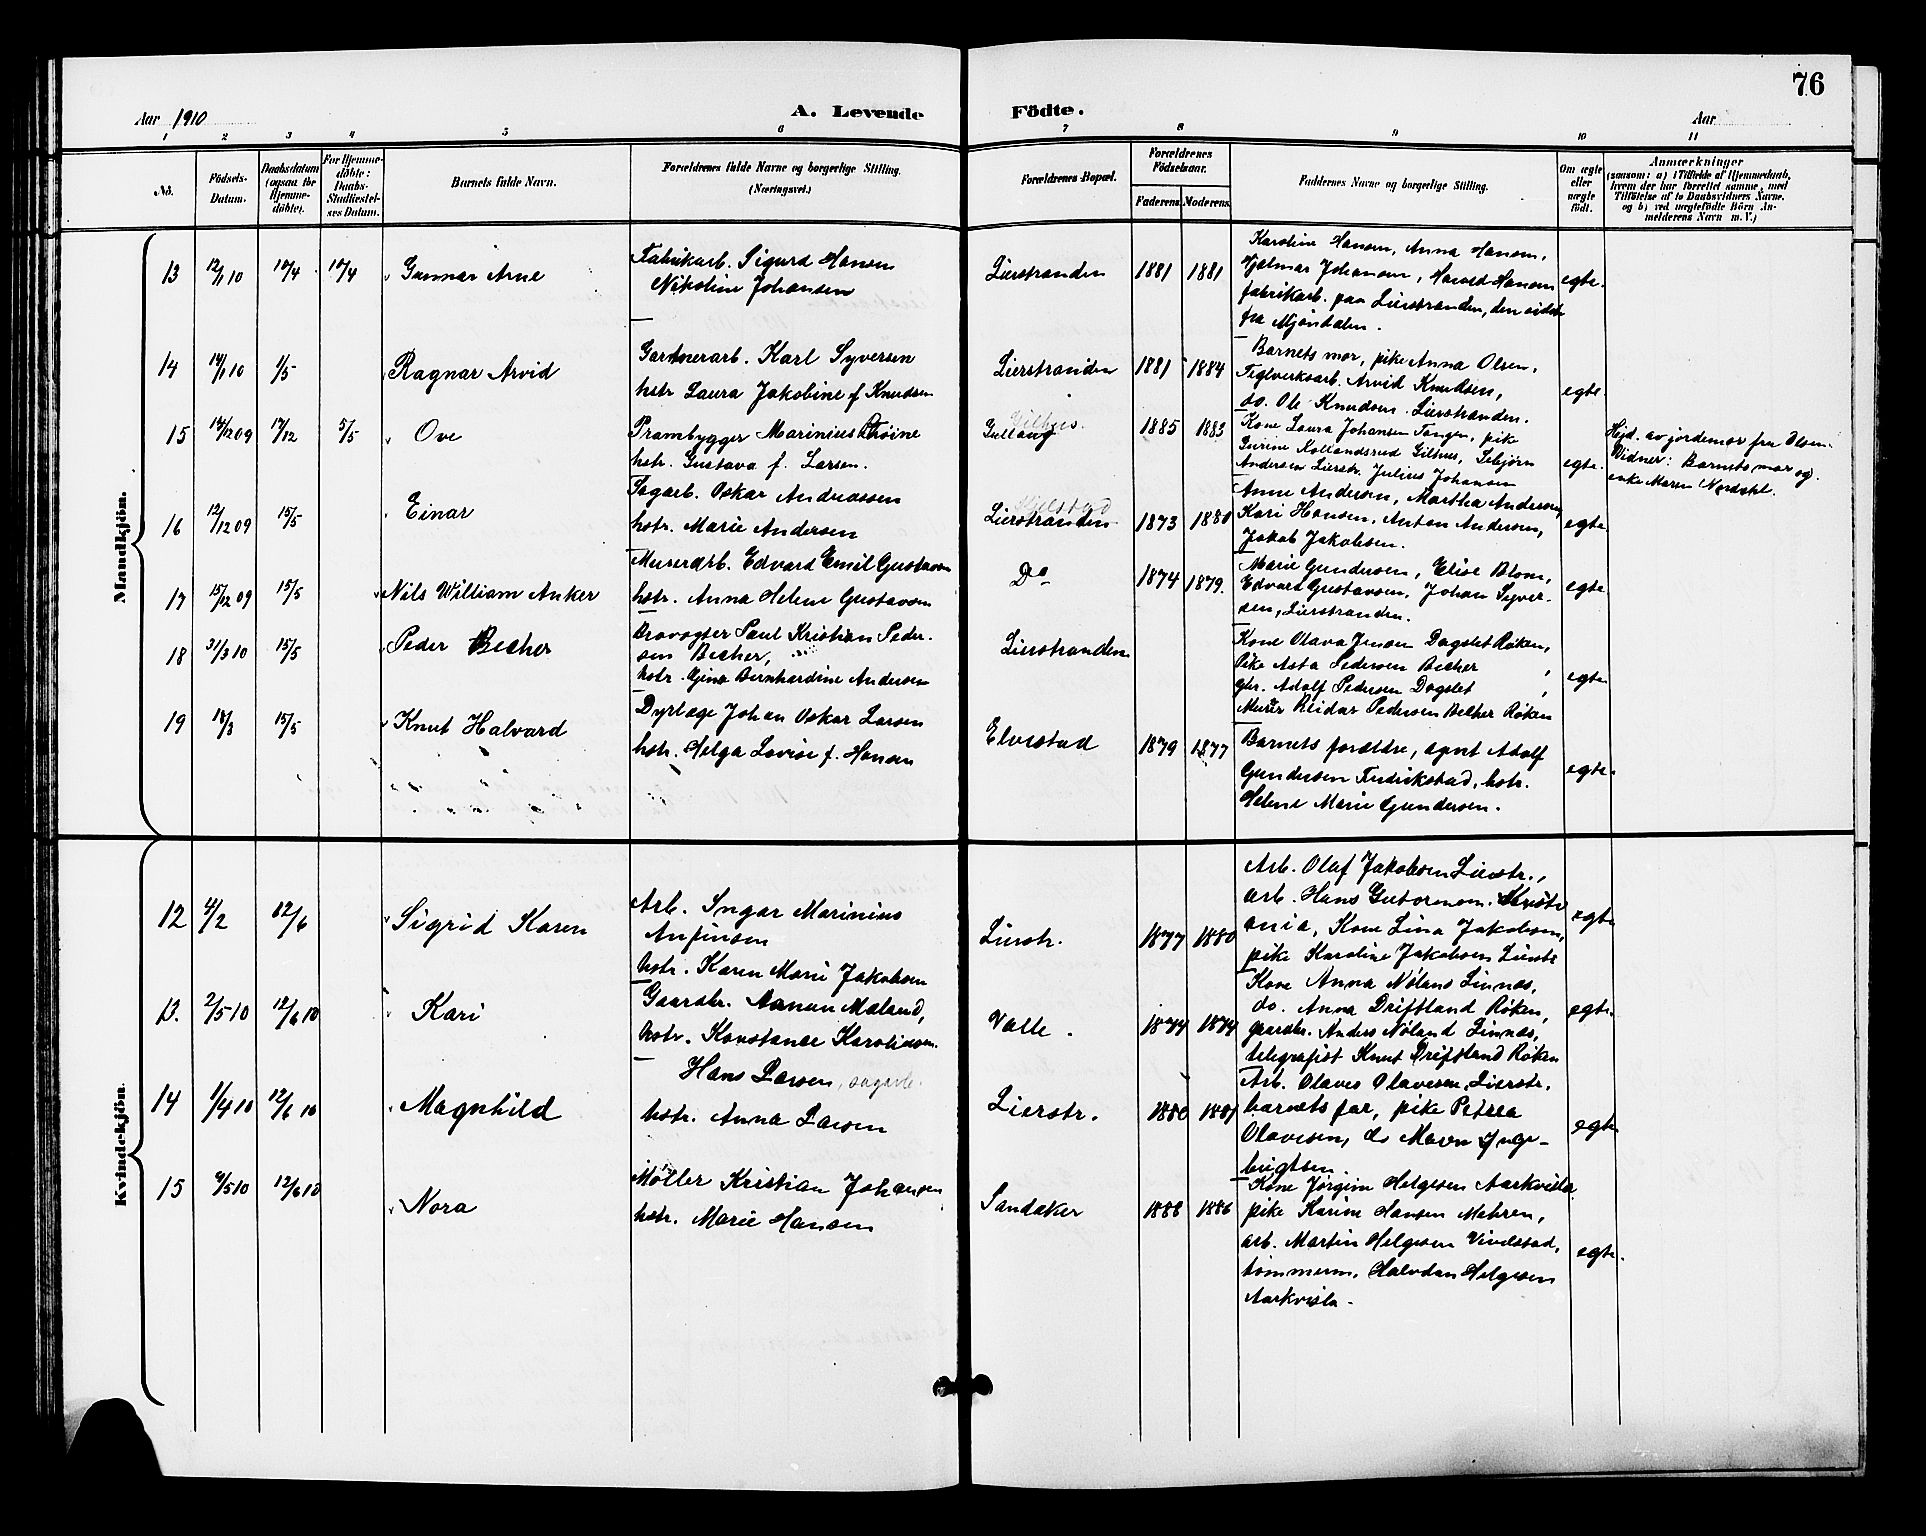 76
Aar 1910
A. Levende Födte.
Aar
1 2 3 4 5 6 7 8 9 10 11
No.
Födsels-Datum.
Daabsdatum (ogsaa for Hjemmedöbte).
For Hjemmedöbte: Daabs-Stadfæstelses Datum.
Barnets fulde Navn.
Forældrenes fulde Navne og borgerlige Stilling. (Næringsvei.)
Forældrenes Bopæl.
Forældrenes Födselsaar.
Faderens. Moderens.
Faddernes Navne og borgerlige Stilling.
Om ægte eller uægte födt.
Anmærkninger
(saasom: a) i Tilfælde af Hjemmedaab, hvem der har forrettet samme, med Tilföielse af to Daabsvidners Navne, og b) ved uægtefödte Börn Anmelderens Navn m. V.)
Mandkjön.
13 12/1 10 10/4 10/4 Gunnar Arne
Fabrikarb. Sigurd Hansen
Nikoline Johansen
Lierstranden 1881 1881
Karoline Hansen, Anna Hansen,
Hjalmar Johansen, Harald Hansen
fabrikarb. paa Lierstranden, den sidste
fra Mjøndalen.
egte.
14 14/1 10 1/5 Ragnar Arvid
Gartnerarb. Karl Syversen
hstr Laura Jakobine f Knudsen
Lierstranden 1881 1884
Barnets mor, pike Anna Olsen,
Teglverksarb. Arvid Knudsen,
do. Ole Knudsen Lierstranden.
egte
15 14/12 09 17/12 5/5 Ove
Prambygger Marinius
hstr. Gustava f. Larsen.
Gullaug 1885 1883
Kone Laura Johansen Tangen, pike
Gurine Kollandsrud Gilhus,
Andersen Lierstr. Julius Johansen
egte.
Hjd. av jordemor fru Olsen.
Vidner: Barnets mor og
enke Maren Nordahl.
16 12/12 09 15/5 Einar
Sagarb. Oskar Andreassen
hstr. Marie Andersen
Lierstranden 1873 1880
Anne Andersen, Martha Andersen
Kari Hansen, Anton Andersen,
Jakob Jakobsen.
egte
17 15/12 09 15/5 Nils William Anker
Murerarb. Edvard Emil Gustavsen
hstr. Anna Helene Gustavsen
Do 1874 1879.
Marie Gundersen, Elise Blom,
Edvard Gustavsen, Johan Syver-
sen, Lierstranden.
egte
18 31/3 10 15/5 Peder Becher
Brovogter Paul Kristian Peder-
sen Becher,
hstr. Gina Bernhardine Andersen
Lierstranden
Kone Olava Jensen Dagslet Røken,
Pike Asta Pedersen Becher
gbr. Adolf Pedersen Dagslet
Murer Reidar Pedersen Becher Røken
egte
19 18/3 15/5 Knut Halvard
Dyrlæge Johan Oskar Larsen
hstr. Helga Lovise f. Hansen
Elvestad 1879 1877
Barnets forældre, agent Adolf
Gundersen Fredrikstad, hstr.
Helene Marie Gundersen.
egte.
Kvindekjön.
12 4/2 12/6 Sigrid Karen
Arb. Ingar Marinius
Anfinsen
hstr. Karen Marie Jakobsen
Lierstr. 1877 1880
Arb. Olaf Jakobsen Lierstr.,
arb. Hans Gutormsen. Kristi
ania, Kone Lina Jakobsen,
pike Karoline Jakobsen Lierstr
egte
13. 2/5 10 12/6 10 Kari
Gaardbr. Aanun Maland,
hstr. Konstance Karolius
Valle. 1874 1874
Kone Anna Nøland Linnes,
do. Anna Driftland Røken,
gaardbr. Anders Nøland Linnes,
telegrafist Knut Driftland Røken
egte.
14 1/4 10 12/6 10 Magnhild
Hans Larsen, sagarb.
hstr. Anna Larsen
Lierstr. 1880 1881
Arb. Olaves Olavesen Lierstr.
barnets far, pike Petrea
Olavesen, do Maren Inge-
brigtsen.
egte.
15 9/5 10 12/6 10 Nora
Møller Kristian Johansen
hstr. Marie Hansen
Sandaker 1888 1886
Kone Jørgine Helgesen Aarkvisla
pike Karine Hansen Mehren,
arb. Martin Helgesen Vivelstad,
tømmerm. Halvdan Helgesen
Aarkvisla.
egte.